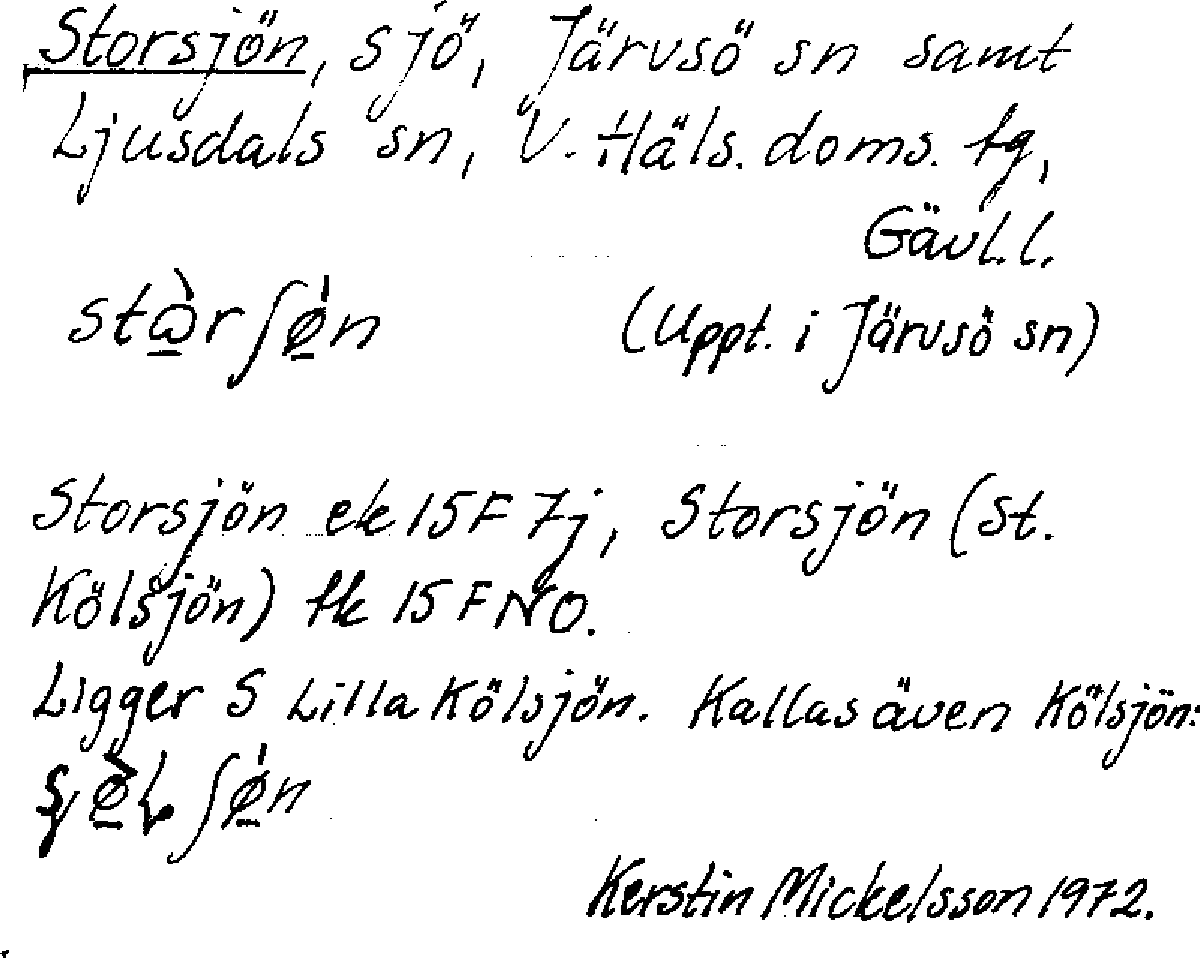 Storsjön, sjö, Järvsö sn samt
Ljusdals sn, V. Häls. doms. tg,
Gävl.l.
stὼ̲rʃǿ̲n (Uppt. i Järvsö sn)
Storsjön ek 15F 7j, Storsjön (St.
Kölsjön) tk 15F NO.
Ligger S Lilla Kölsjön. Kallas även Kölsjön:
ʃǿ̲n
Kerstin Mickelsson 1972.